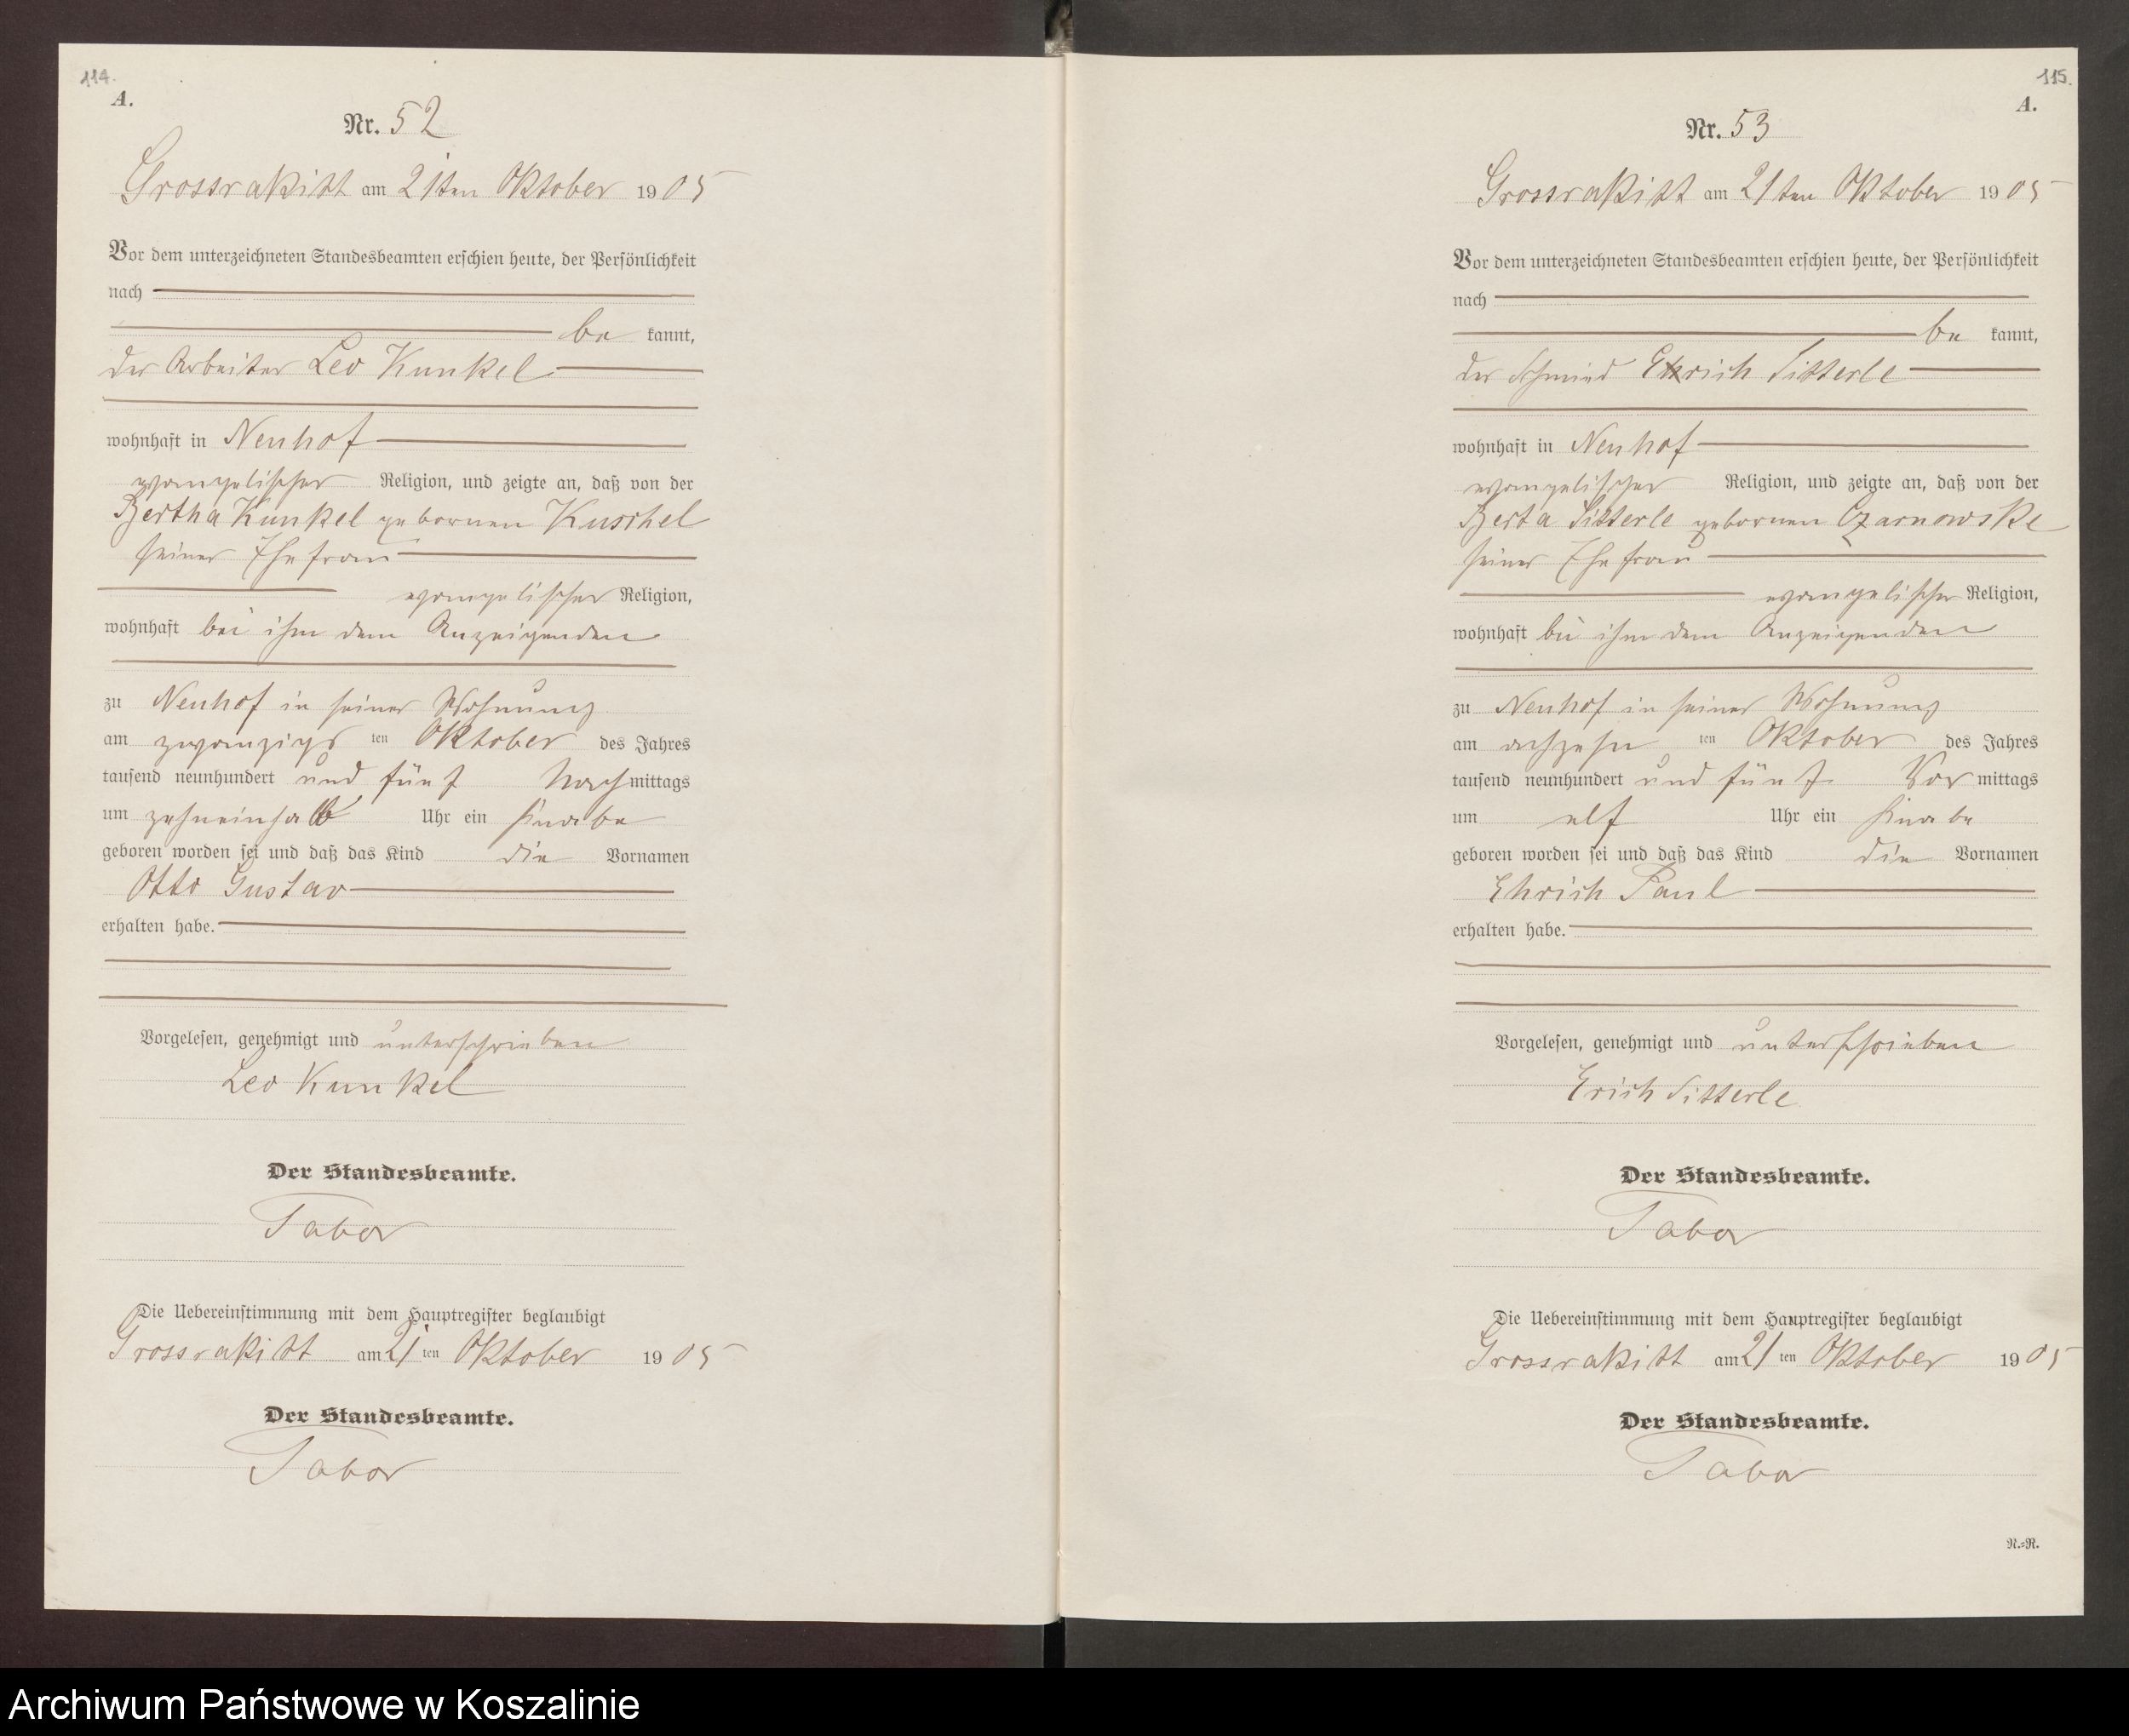 114.
A.
Nr. 52
Grossrakitt am 21ten Oktober 1905
Vor dem unterzeichneten Standesbeamten erschien heute, der Persönlichkeit
nach
be kannt,
der Arbeiter Leo Kunkel
wohnhaft in Neuhof
evangelischer Religion, und zeigte an, daß von der
Bertha Kunkel gebornen Kuschel
seiner Ehefrau
evangelischer Religion,
wohnhaft bei ihm dem Anzeigenden
zu Neuhof in seiner Wohnung
am zwanzigs ten Oktober des Jahres
tausend neunhundert und fünf Nachmittags
um zehneinhalb Uhr ein Knabe
geboren worden sei und daß das Kind die Vornamen
Otto Gustav
erhalten habe.
Vorgelesen, genehmigt und unterschrieben
Leo Kunkel
Der Standesbeamte.
Tabor
Die Uebereinstimmung mit dem Hauptregister beglaubigt
Grossrakitt am 21 ten Oktober 1905
Der Standesbeamte.
Tabor
115.
A.
Nr. 53
Grossrakitt am 21ten Oktober 1905
Vor dem unterzeichneten Standesbeamten erschien heute, der Persönlichkeit
nach
be kannt,
der Schmied Ehrich Sitterle
wohnhaft in Neuhof
evangelischer Religion, und zeigte an, daß von der
Berta Sitterle gebornen Czarnowske
seiner Ehefrau
evangelischer Religion,
wohnhaft bei ihm dem Anzeigenden
zu Neuhof in seiner Wohnung
am achzehn ten Oktober des Jahres
tausend neunhundert und fünf Vor mittags
um elf Uhr ein Knabe
geboren worden sei und daß das Kind die Vornamen
Ehrich Paul
erhalten habe.
Vorgelesen, genehmigt und unterschrieben
Erich Sitterle
Der Standesbeamte.
Tabor
Die Uebereinstimmung mit dem Hauptregister beglaubigt
Grossrakitt am 21 ten Oktober 1905
Der Standesbeamte.
Tabor
N.=R.
Archiwum Państwowe w Koszalinie